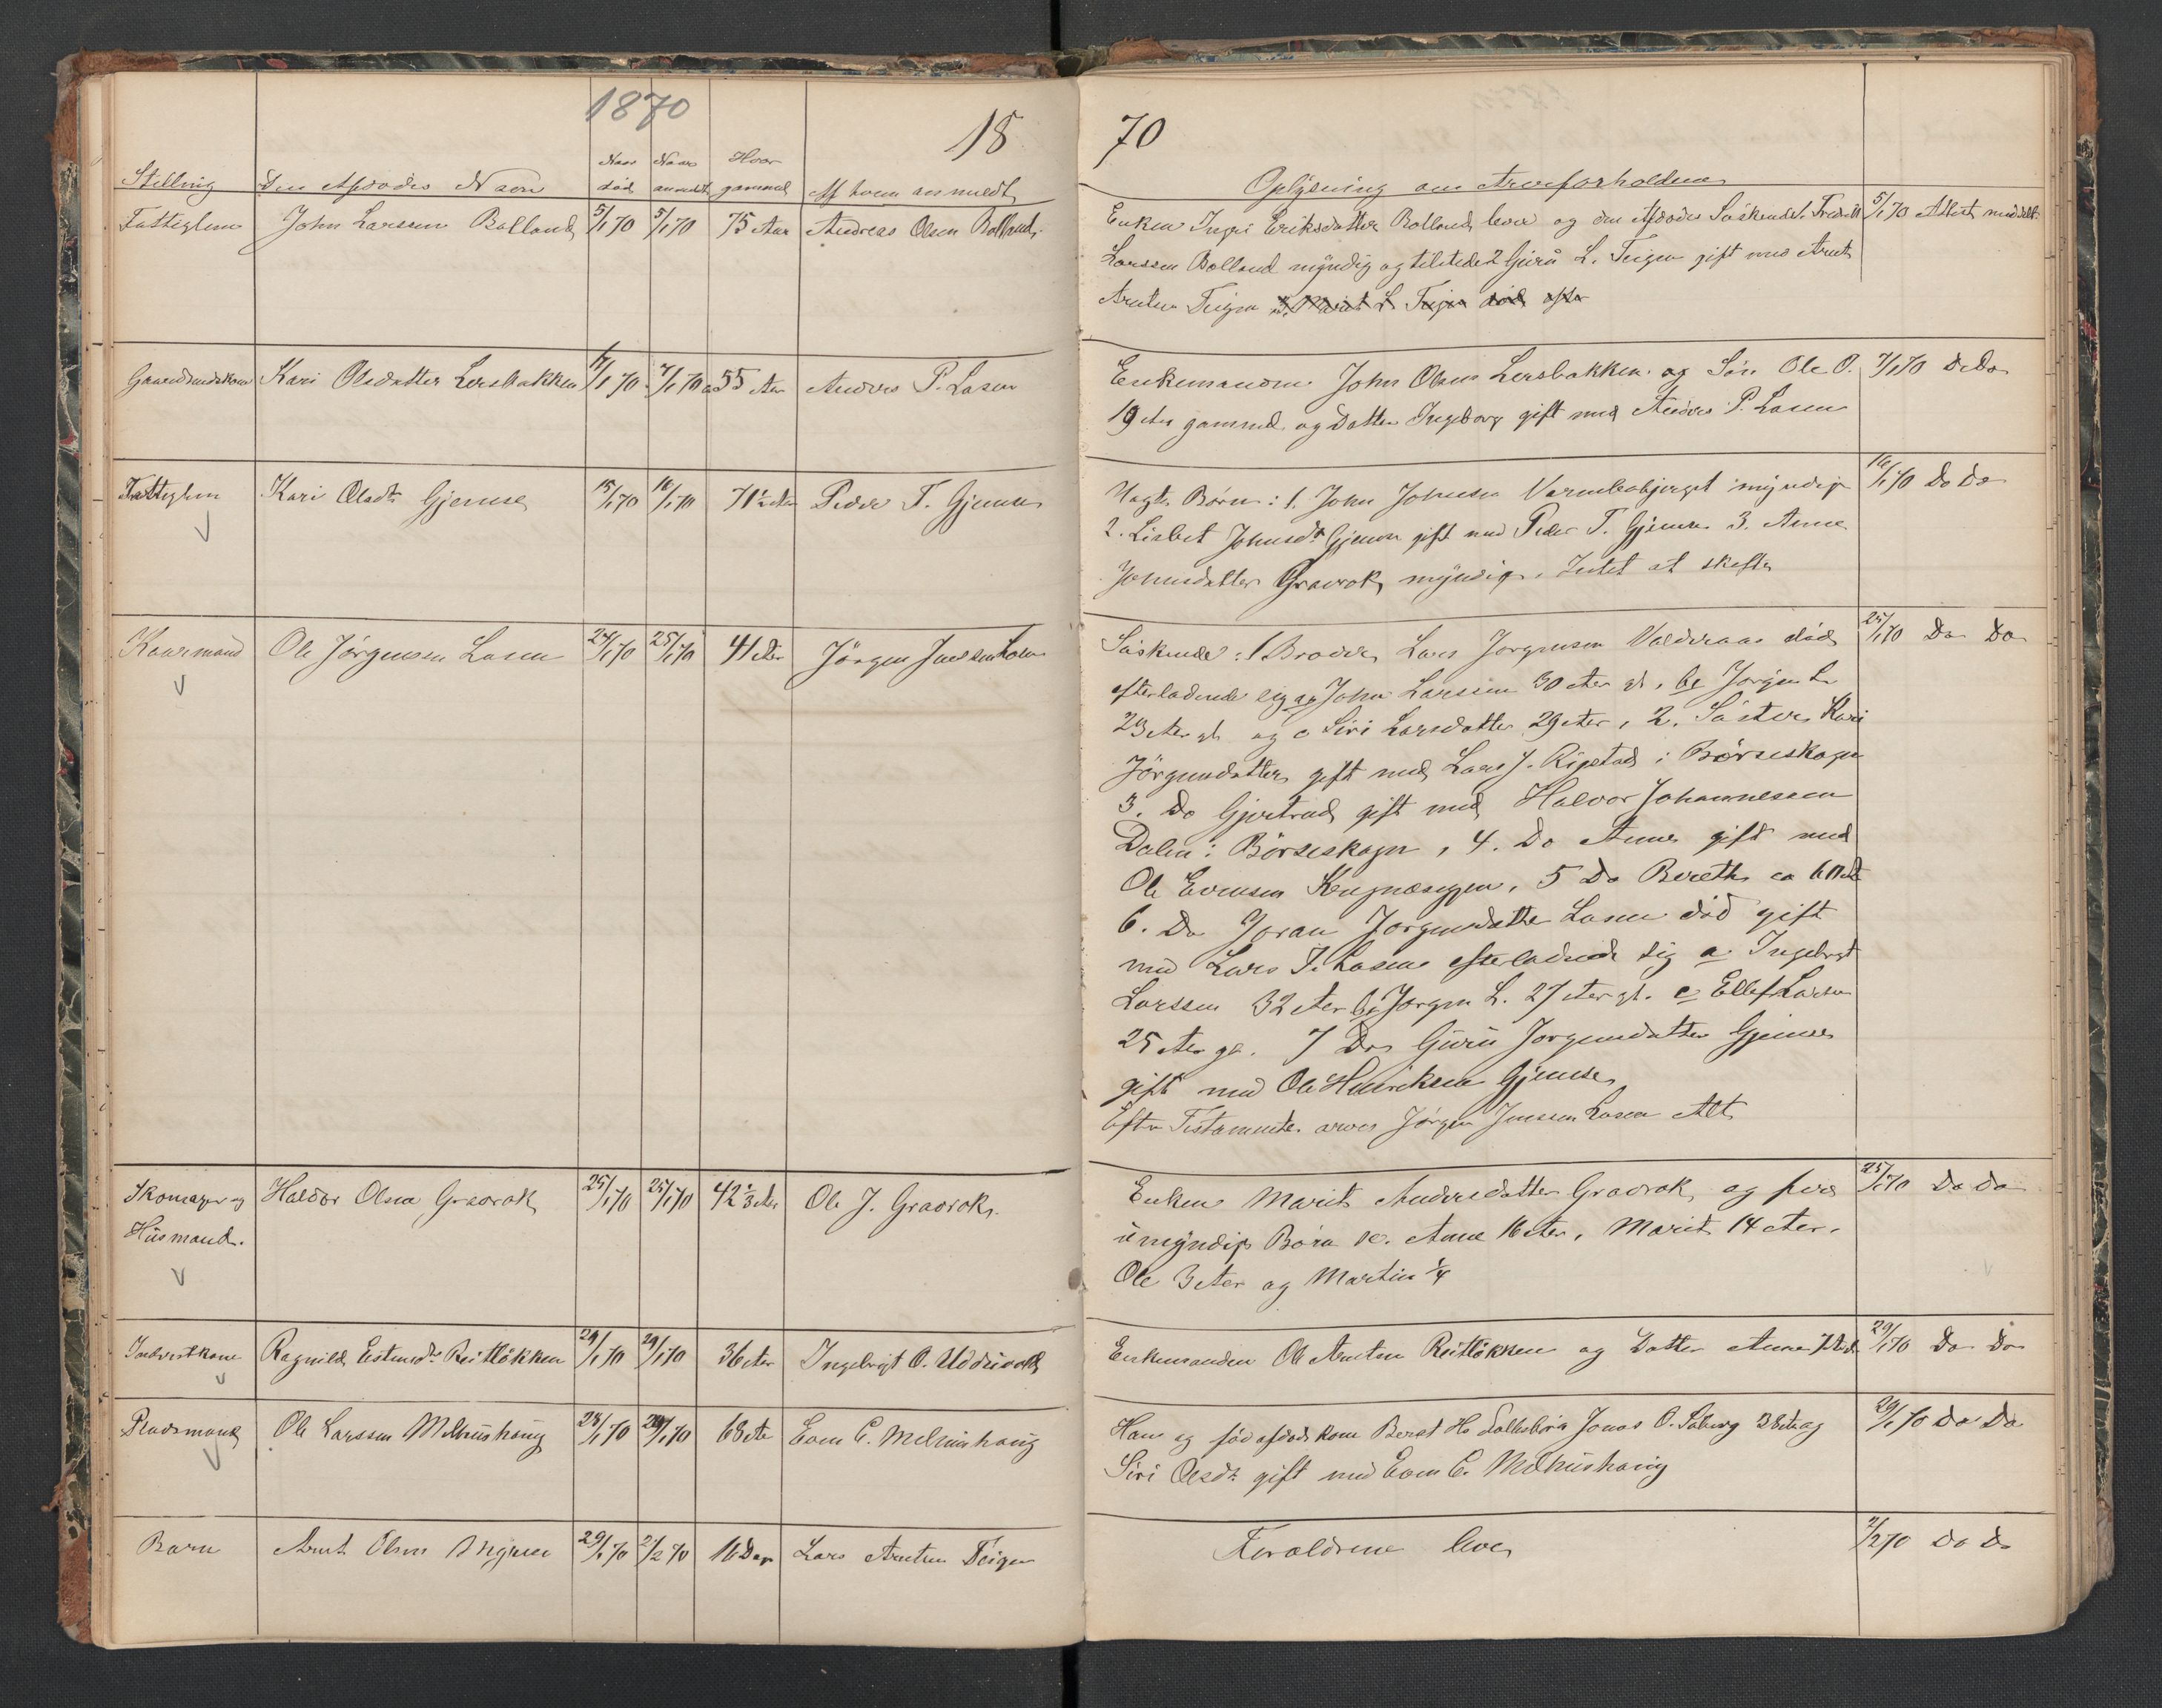 1870
18 70
Stilling Den Afdødes Navn Naar død Naar anmeldt Hvor gammel Af hvem anmeldt Oplysning om Arveforholdene
Fattiglem John Larssen Bolland 5/1 70 5/1 70 75 Aar Andreas Olsen Bolland
Enken Ingri Eriksdatter Bolland lever og den Afdødes Søskende 1. Fredrik 5/1 70 Attest meddelt
Larssen Bolland myndig og tilstede 2 Guru L. Teigen gift med Arnt
Arntsen Teigen
Gaardmandskone Kari Olsdatter Lersbakken 4/1 70 7/1 70 55 Aar Anders P. Losen
Enkemanden John Olsen Lersbakken og Søn Ole O. 7/1 70 Do Do
19 Aar gammel og Datter Ingeborg gift med Anders P. Losen
Fattiglem Kari Olsdtr Gjemse 15/1 70 16/1 70 71 1/2 Aar Peder T. Gjemse
Uægte Børn: 1. John Johnsen Varmbobjerget myndig 16/1 70 Do Do
2. Lisbet Johnsdtr Gjemse gift med Peder T. Gjemse 3. Anne
Johnsdatter Gravrok myndig. Intet at skifte
Kaarmand Ole Jørgensen Losen 24/1 70 25/1 70 41 Aar Jørgen Jenssen Losen
Søskende: 1 Broder Lars Jørgensen Valderaas død 25/1 70 Do Do
efterladende sig a John Larssen 30 Aar gl. b Jørgen L.
23 Aar gl. og c Siri Larsdatter 29 Aar, 2. Søster Kari
Jørgensdatter gift med Lars J. Rigstad i Børseskogn
3. Do Gjertrud gift med Halvor Johannesen
Dalen i Børseskogn, 4. Do Anne gift med
Ole Evensen, 5 Do Bereth ca 60 Aar
6. Do Goran Jørgensdatter Losen død gift
med Lars I. Losen efterladende sig a Ingebrigt
Larssen 32 Aar b Jørgen L. 27 Aar gl. c Ellef Larsen
25 Aar gl. 7 Do Guru Jørgensdatter Gjemse
gift med Ole Henriksen Gjemse
Efter Testamente arver Jørgen Jenssen Losen Alt
Skomager og Haldor Olsen Gravrok 25/1 70 25/1 70 42 2/3 Aar Ole J. Gravrok
Husmand.
Enken Marit Andersdatter Gravrok og fire 25/1 70 Do Do
umyndige Børn sc. Anne 16 Aar, Marit 14 Aar,
Ole 3 Aar og Martin 1/4
Inderstkone Ragnild Estensdtr Reitløkken 24/1 70 29/1 70 36 Aar Ingebrigt O. Udduvold
Enkemanden Ole Arntsen Reitløkken og Datter Anne 29/1 70 Do Do
Pladsmand Ole Larssen Melhushaug 28/1 70 29/1 70 68 Aar Even E. Melhushaug
Han og før afdøde kone Beret Hs Fællesbørn Jonas O. Søberg 38 Aar og 29/1 70 Do Do
Siri Olsdtr gift med Even E. Melhushaug
Barn Arnt Olsen 29/1 70 2/2 70 16 Dage Lars Arntsen Teigen
Forældrene lever 2/2 70 Do Do